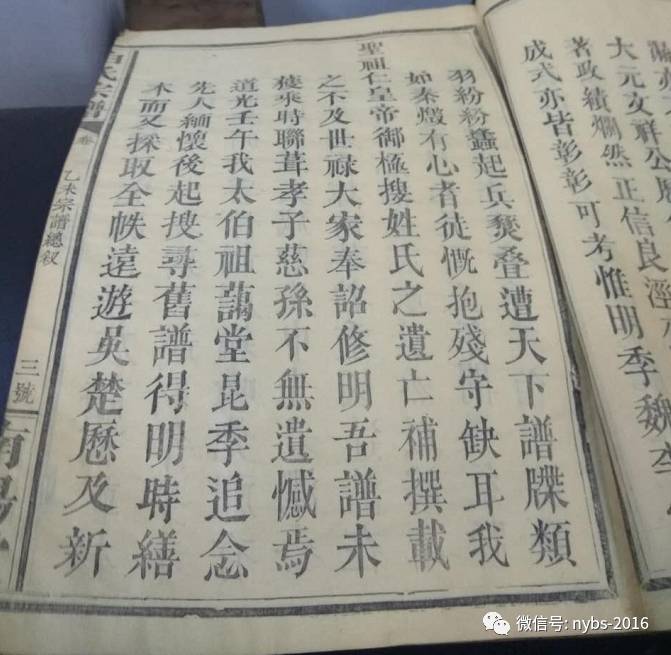 大元文祥公
著政績爛然正信良
成式亦皆彰彰可考惟明季魏李
羽紛紛蠭起兵燹疊遭天下譜牒類
如秦燬有心者徒慨抱殘守缺耳我
聖祖仁皇帝御極搜姓氏之遺亡補撰載
之不及世祿大家奉詔修明吾譜未
獲乘時聯葺孝子慈孫不無遺憾焉
道光壬午我太伯祖藹堂昆季追念
先人緬懷後起搜尋舊譜得明時繕
本而又採取全帙遠遊吳楚歷及新
氏宗譜
卷
乙未宗譜總叙
三號
南陽
微信号: nybs-2016